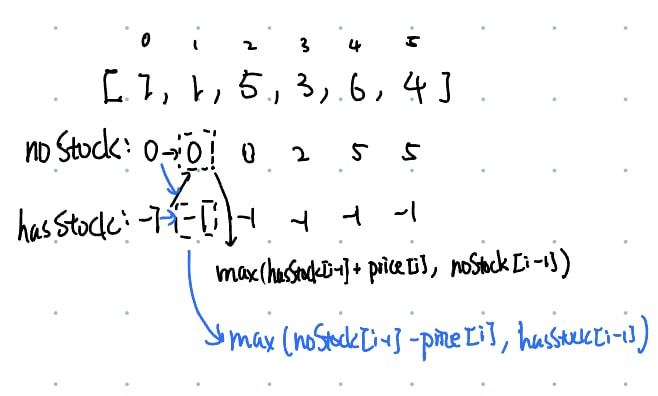 0 1 2 3 4 5
[7, 1, 5, 3, 6, 4]
noStock: 0 → 0 0 2 5 5
hasStock: -7 → -1 -1 -1 -1 -1
max(hasStock[i-1] + price[i], noStock[i-1])
max(noStock[i-1] - price[i], hasStock[i-1])